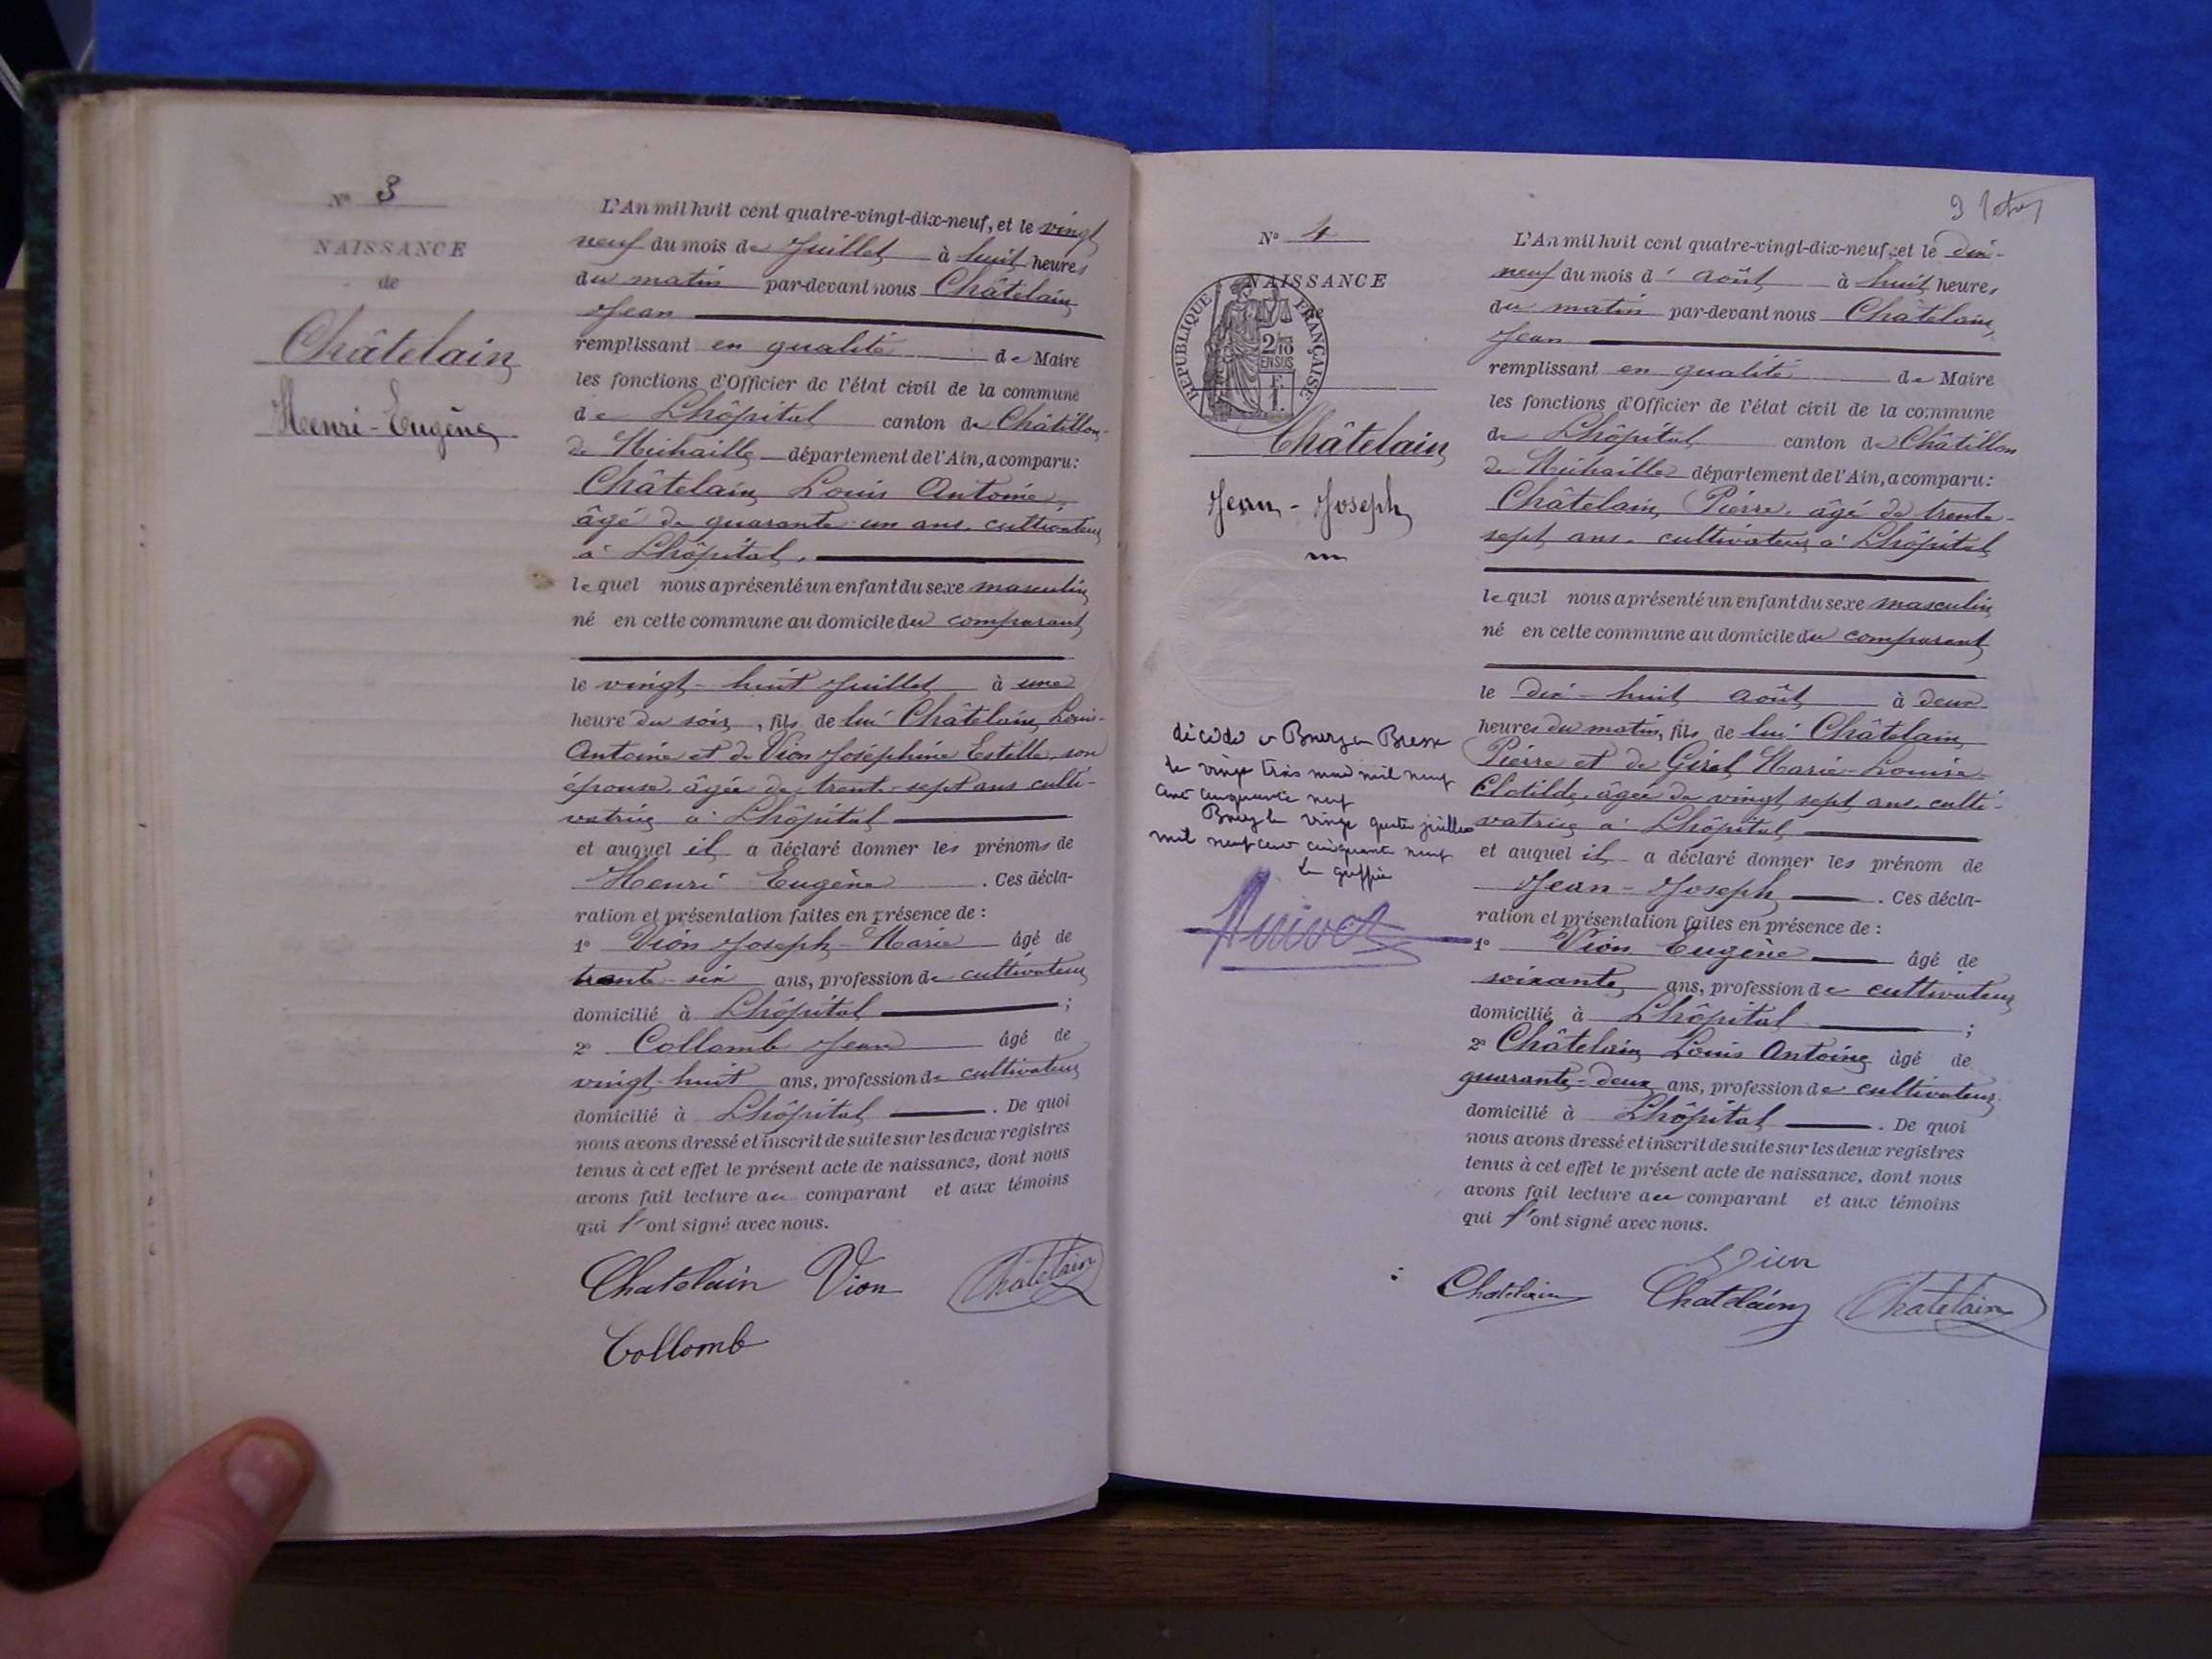 N° 3
NAISSANCE
de
Châtelain
Henri-Eugène
L'An mil huit cent quatre-vingt-dix-neuf, et le vingt
neuf du mois de Juillet à huit heures
du matin par-devant nous Châtelain
Jean
remplissant en qualité de Maire
les fonctions d'Officier de l'état civil de la commune
de Lhôpital canton de Châtillon-
de Michaille département de l'Ain, a comparu:
Châtelain Louis Antoine,
âgé de quarante-un ans, cultivateur
à Lhôpital,
lequel nous a présenté un enfant du sexe masculin
né en cette commune au domicile du comparant
le vingt-huit Juillet à une
heure du soir, fils de lui Châtelain Louis-
Antoine et de Vion Joséphine Estelle, son
épouse, âgée de trente-sept ans culti-
vatrice à Lhôpital
et auquel il a déclaré donner les prénoms de
Henri Eugène. Ces décla-
ration et présentation faites en présence de:
1° Vion Joseph-Marie âgé de
trente-six ans, profession de cultivateur
domicilié à Lhôpital;
2° Collomb Jean âgé de
vingt-huit ans, profession de cultivateur
domicilié à Lhôpital. De quoi
nous avons dressé et inscrit de suite sur les deux registres
tenus à cet effet le présent acte de naissance, dont nous
avons fait lecture au comparant et aux témoins
qui l'ont signé avec nous.
Chatelain Vion Chatelain
Collomb
N° 4
NAISSANCE
de
REPUBLIQUE FRANÇAISE
2/10
EN SUS
F.
1.
Châtelain
Jean-Joseph
décédé à Bourg en Bresse
le vingt trois mai mil neuf
cent cinquante neuf
Bourg le vingt quatre juillet
mil neuf cent cinquante neuf
Le greffier
L'An mil huit cent quatre-vingt-dix-neuf, et le dix-
neuf du mois d'août à huit heures
du matin par-devant nous Châtelain
Jean
remplissant en qualité de Maire
les fonctions d'Officier de l'état civil de la commune
de Lhôpital canton de Châtillon
de Michaille département de l'Ain, a comparu:
Châtelain Pierre, âgé de trente-
sept ans, cultivateur à Lhôpital
lequel nous a présenté un enfant du sexe masculin
né en cette commune au domicile du comparant
le dix-huit août à deux
heures du matin, fils de lui Châtelain
Pierre et de Girel Marie-Louise-
Clotilde, âgée de vingt sept ans, culti-
vatrice à Lhôpital
et auquel il a déclaré donner les prénom de
Jean-Joseph. Ces décla-
ration et présentation faites en présence de:
1° Vion Eugène âgé de
soixante ans, profession de cultivateur
domicilié à Lhôpital;
2° Châtelain Louis Antoine âgé de
quarante-deux ans, profession de cultivateur
domicilié à Lhôpital. De quoi
nous avons dressé et inscrit de suite sur les deux registres
tenus à cet effet le présent acte de naissance, dont nous
avons fait lecture au comparant et aux témoins
qui l'ont signé avec nous.
Vion
Chatelain Chatelain Chatelain